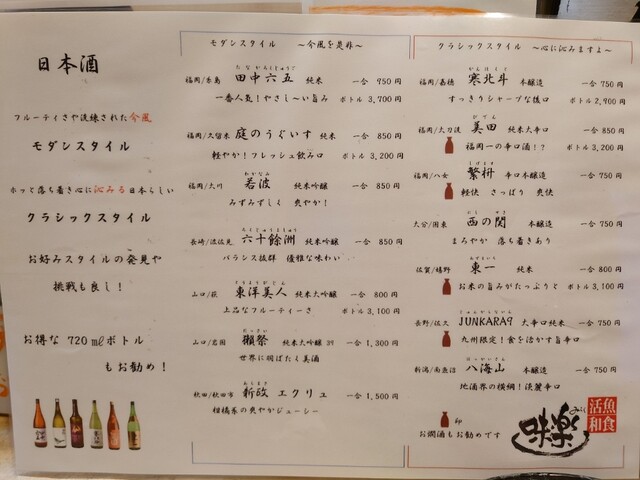 日本酒
フルーティさや洗練された今風
モダンスタイル
ホッと落ち着き心に沁みる日本らしい
クラシックスタイル
お好みスタイルの発見や
挑戦も良し!
お得な 720mlボトル
もお勧め!
モダンスタイル ～今風を是非～
たなかろくじゅうご
福岡/糸島 田中六五 純米 一合 750円
一番人気!やさし～い旨み ボトル 3,700円
福岡/久留米 庭のうぐいす 純米 一合 850円
軽やか!フレッシュ飲み口 ボトル 3,200円
わかなみ
福岡/大川 若波 純米吟醸 一合 850円
みずみずしく 爽やか!
ろくじゅうよしゅう
長崎/波佐見 六十餘洲 純米吟醸 一合 850円
バランス抜群 優雅な味わい
とうようびじん
山口/萩 東洋美人 純米大吟醸 一合 800円
上品なフルーティーさ ボトル 3,100円
だっさい
山口/岩国 獺祭 純米大吟醸 一合 1,300円
世界に羽ばたく美酒
あらまさ
秋田/秋田市 新政 エクリュ 一合 1,500円
柑橘系の爽やかジューシー
クラシックスタイル ～心に沁みますよ～
かんほくと
福岡/嘉穂 寒北斗 本醸造 一合 750円
すっきりシャープな後口 ボトル 2,900円
びでん
福岡/大刀洗 美田 純米大辛口 一合 850円
福岡一の辛口酒!? ボトル 3,200円
しげます
福岡/八女 繁桝 辛口本醸造 一合 750円
軽快 さっぱり 爽快
にし せき
大分/国東 西の関 本醸造 一合 750円
まろやか 落ち着きあり
あづまいち
佐賀/嬉野 東一 純米 一合 800円
お米の旨みがたっぷりと ボトル 3,100円
じゅんからくいん
長野/佐久 JUNKARA9 大辛口純米 一合 750円
九州限定!食を活かす旨辛口
はっかいさん
新潟/南魚沼 八海山 本醸造 一合 750円
地酒界の横綱!淡麗辛口
印
お燗酒もお勧めです
味楽
みらく
活魚
和食